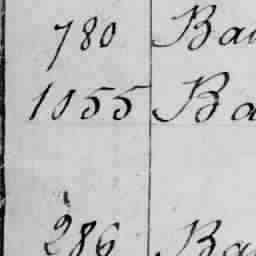 780 Ba
1055 Ba
286 Ba